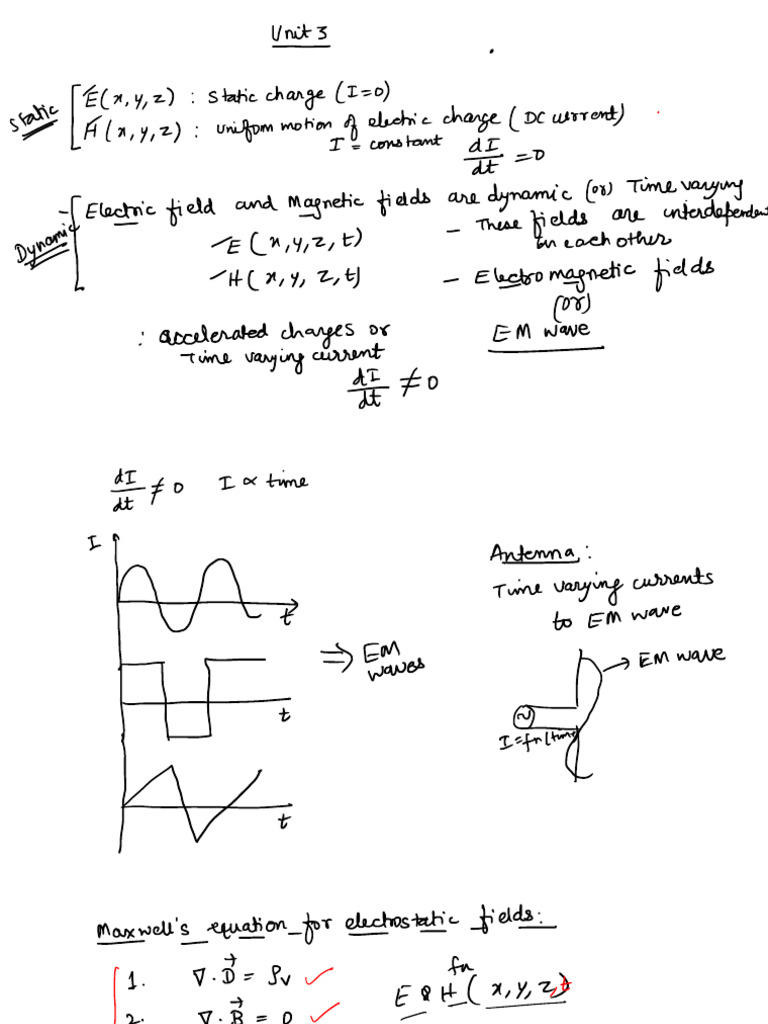 Unit 3
Static
E(x,y,z) : static charge (I=0)
H(x,y,z) : uniform motion of electric charge (DC current)
I = constant dI/dt = 0
Dynamic
- Electric field and Magnetic fields are dynamic (or) Time varying
E(x,y,z,t)
H(x,y,z,t)
- These fields are interdependent
on each other
- Electromagnetic fields
(or)
EM wave
: accelerated charges or
Time varying current
dI/dt ≠ 0
dI/dt ≠ 0 I ∝ time
I
t
t
t
⇒ EM
waves
Antenna :
Time varying currents
to EM wave
→ EM wave
~
I = fn(time)
Maxwell's equation for electrostatic fields:
1. ∇·D⃗ = ρv ✓
2. ∇·B⃗ = 0 ✓
fn
E & H (x,y,z,t)